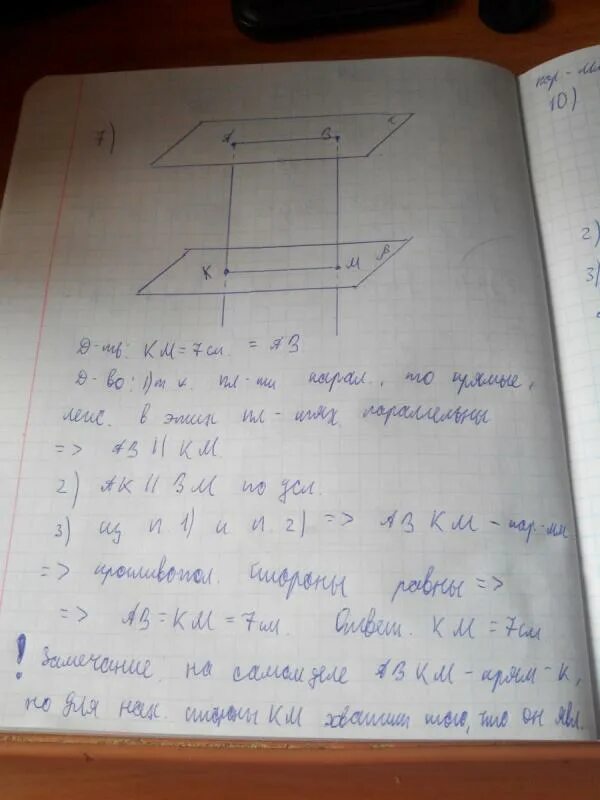 7)
A B α
K M β
Д-ть: KM = 7 см. = AB
Д-во: 1) т.к. пл-ти парал., то прямые,
леж. в этих пл-тях параллельны
=> AB || KM.
2) AK || BM по усл.
3) из п. 1) и п. 2) => ABKM - пар-мм
=> противопол. стороны равны =>
=> AB = KM = 7 см. Ответ. KM = 7 см
! Замечание, на самом деле ABKM - прям-к,
но для нах. стороны KM хватит того, что он явл.
пар-мм
10)
2)
3)